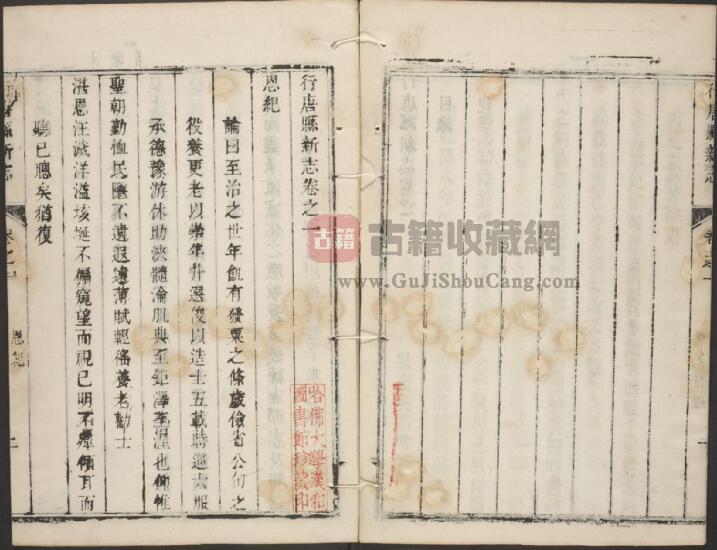 行唐縣新志卷之一
恩紀
論曰至治之世年飢有發粟之條歲儉省公旬之
役養更老以崇年升選俊以造士五載時巡六服
承德豫游休助浹髓淪肌典至鉅澤至渥也仰惟
聖朝勤恤民隱不遺遐邇薄賦輕徭養老勸士
洪恩汪濊洋溢垓埏不偏窺望而視已明不殫傾耳而
聽已聰矣猶復
行唐縣新志
卷之一
恩紀
二
行唐縣新志
卷之一
一
哈佛大學漢和
圖書館珍藏印
古籍
古籍收藏網
www.GuJiShouCang.com